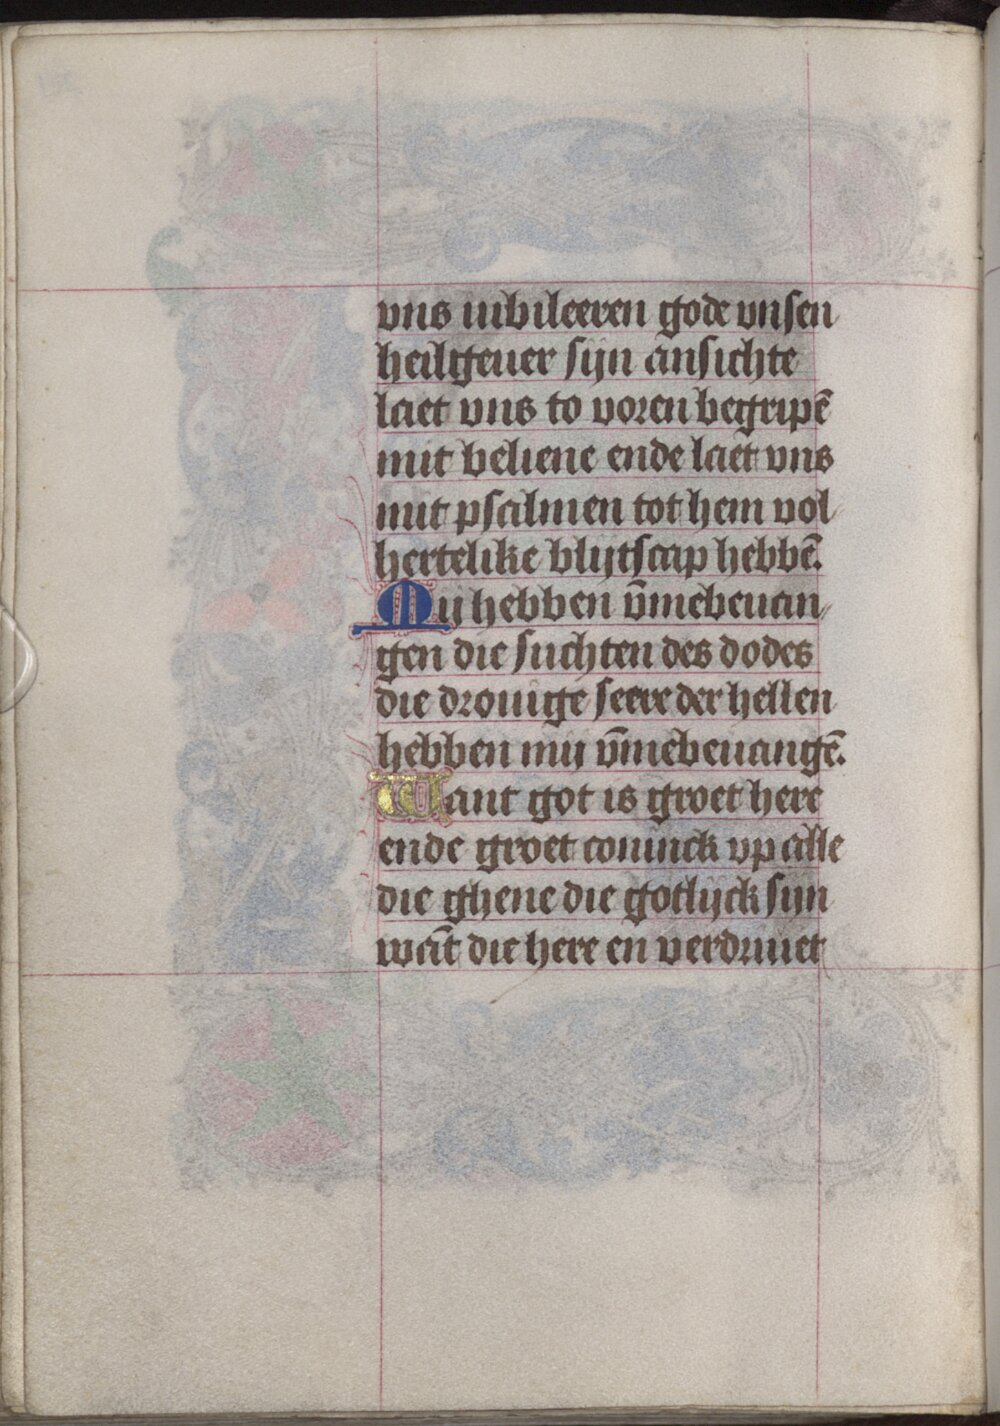 vns iubileeren gode vnsen
heilgeuer sijn ansichte
laet vns to voren begripē
mit beliene ende laet vns
mit psalmen tot hem vol
hertelike blijtscap hebbē.
Mij hebben v̄mebeuan
gen die suchten des dodes
die drouige seere der hellen
hebben mij v̄mebeuangē.
Want got is groet here
ende groet coninck vp alle
die ghene die gotlijck sijn
wāt die here en verdriuet